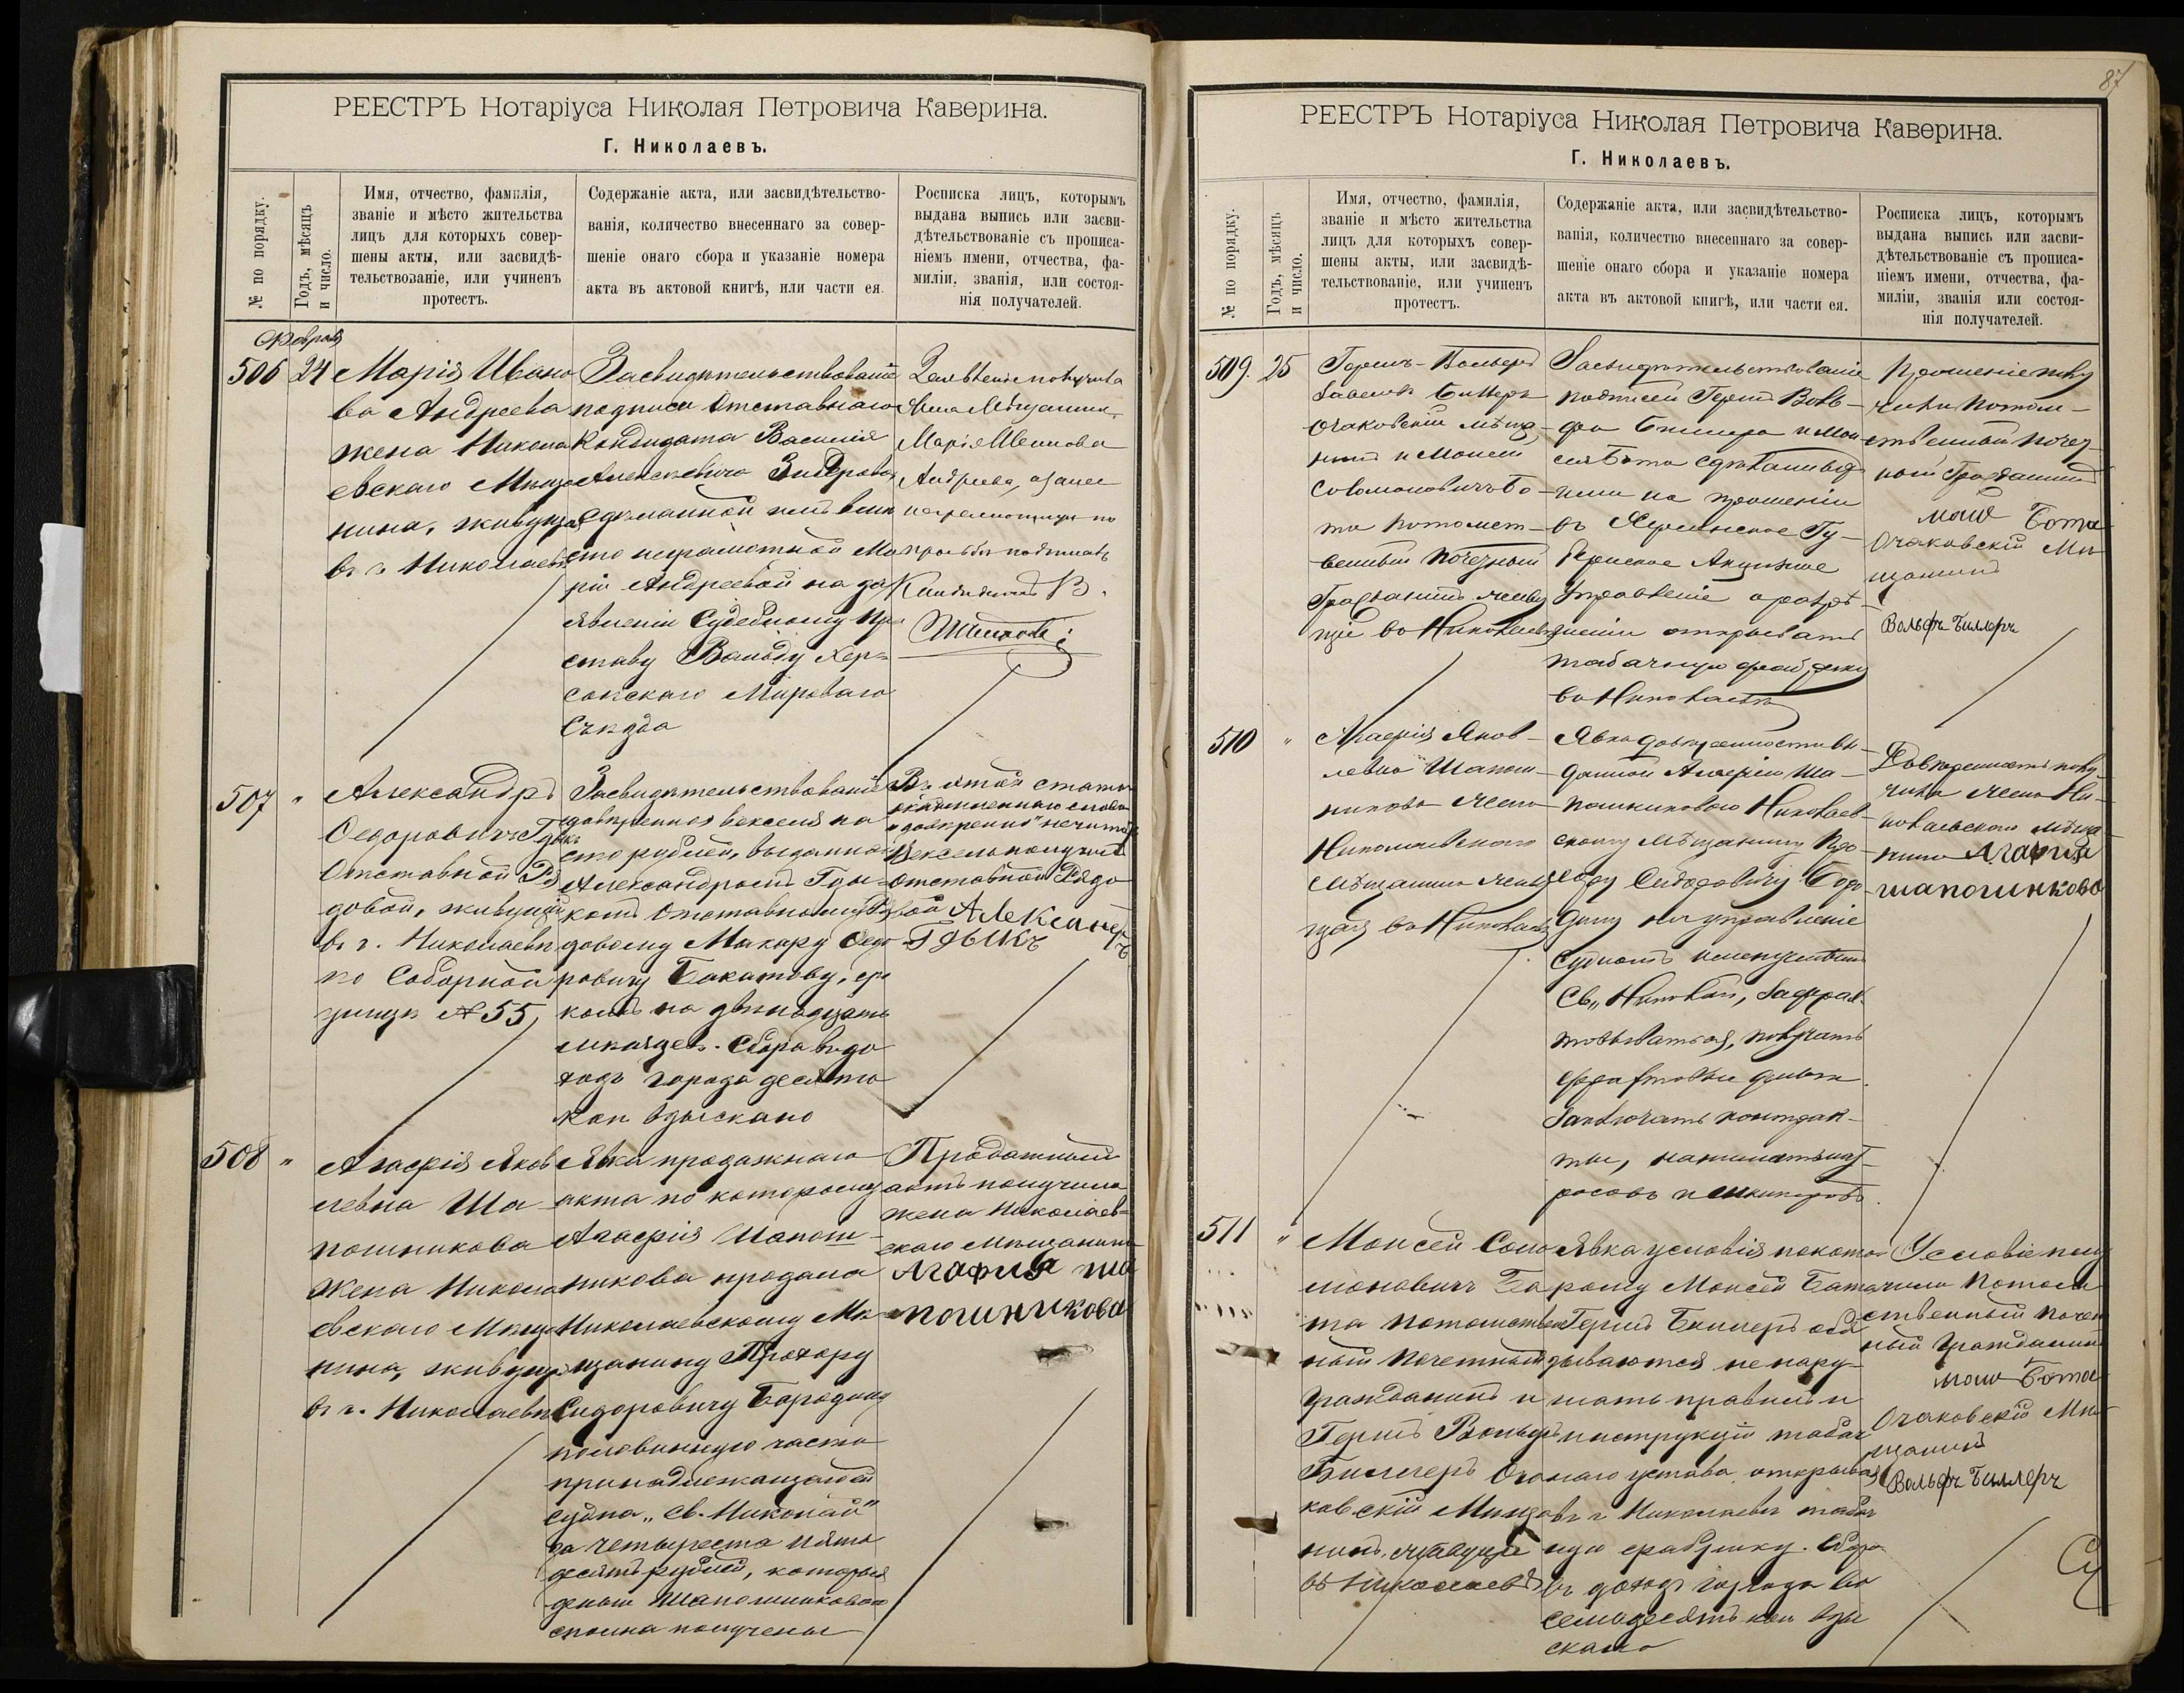 РЕЕСТРЪ Нотаріуса Николая Петровича Каверина.
Г. Николаевъ.
№ по порядку.
Годъ, мѣсяцъ
и число.
Имя, отчество, фамилія,
званіе и мѣсто жительства
лицъ для которыхъ совер-
шены акты, или засвидѣ-
тельствованіе, или учиненъ
протестъ.
Содержаніе акта, или засвидѣтельство-
ванія, количество внесеннаго за совер-
шеніе онаго сбора и указаніе номера
акта въ актовой книгѣ, или части ея.
Росписка лицъ, которымъ
выдана выпись или засви-
дѣтельствованіе съ прописа-
ніемъ имени, отчества, фа-
миліи, званія, или состоя-
нія получателей.
Февраля
506
24
Марія Ивано
ва Андреева
жена Никола
евскаго Мѣща
нина, живущая
въ г. Николаевѣ
Засвидѣтельствованіе
подписи Отставнаго
Кандидата Василія
Алексѣевича
сдѣланной имъ вмѣ
сто неграмотной Ма
ріи Андреевой на за
явленіи Судебному При
ставу Вальду Хер=
сонскаго Мироваго
Съѣзда
Заявленіе получила
жена Мѣщанин.
Марія Иванова
Андреева, а за нее
неграмотную по
просьбѣ подписалъ
Кандидатъ В.
507
"
Александръ
Ѳедоровичъ Гдыкъ
Отставной Ря
довой, живущій
въ г. Николаевѣ
по Соборной
улицѣ № 55,
Засвидѣтельствованіе
довѣренно векселя на
сто рублей, выданнаго
Александромъ Гды=
комъ Отставному Ря
довому Макару Ѳедо
ровичу Бакатову, сро
комъ на двѣнадцать
мѣсяцевъ. Сбора въ до
ходъ города десять
коп взыскано
Въ этой статьѣ
слово
"довѣренно" не читать
Вексель получилъ
отставной Рядо
вой Александеръ
Гдыкъ
508
"
Агафія Яков
левна Ша
пошникова
Жена Никола
евскаго Мѣща
нина, живущая
въ г. Николаевѣ
Явка продажнаго
акта по которому
Агафія Шапош
никова продала
Николаевскому Мѣ
щанину Прохору
Сидоровичу Бородину
половинную часть
принадлежащаго ей
судна „Св. Николай"
за четыреста пять
десятъ рублей, которыя
деньги Шапошниковою
сполна получены
Продажный
актъ получила
жена Николаев-
скаго Мѣщанина
Агафия Ша
пошникова
87
РЕЕСТРЪ Нотаріуса Николая Петровича Каверина.
Г. Николаевъ.
№ по порядку.
Годъ, мѣсяцъ
и число.
Имя, отчество, фамилія,
званіе и мѣсто жительства
лицъ для которыхъ совер-
шены акты, или засвидѣ-
тельствованіе, или учиненъ
протестъ.
Содержаніе акта, или засвидѣтельство-
ванія, количество внесеннаго за совер-
шеніе онаго сбора и указаніе номера
акта въ актовой книгѣ, или части ея.
Росписка лицъ, которымъ
выдана выпись или засви-
дѣтельствованіе съ прописа-
ніемъ имени, отчества, фа-
миліи, званія или состоя-
нія получателей.
509.
25
Гершъ-Вольфъ
Биллеръ
Очаковскій мѣща
нинъ и Моисей
Соломоновичъ Бо-
та Потомст-
венный Почетный
Гражданинъ живу
щіе въ Николаевѣ
Засвидѣтельствованіе
подписей Герша Воль-
фа Биллера и Мои
сея Бота сдѣланныхъ
ими на прошеніи
въ Херсонское Гу-
бернское Акцизное
Управленіе о разрѣ-
шеніи открывать
табачную фабрику
въ Николаевѣ
Прошеніе полу
чили Потом-
ственный почет
ный Гражданинъ
Бота
Очаковскій Мѣ
щанинъ
Вольфъ Биллеръ
510
"
Агафія Яков-
левна Шапош-
никова жена
Николаевскаго
мѣщанина живу
щая въ Николаевѣ
Явка довѣренности вы-
данной Агафіею Ша-
пошниковою Николаев-
скому мѣщанину Про-
хору Сидоровичу Боро-
дину на управленіе
судномъ именуемымъ
Св„ Николай, зафрах-
товываться, получать
фрахтовые деньги
заключать контрак-
ты, нанимать мат-
росовъ и шкиперовъ.
Довѣренность полу-
чила жена Ни-
колаевскаго мѣща-
нина Агафия
шапошникова
511
"
Моисей Соло
моновичъ Бо
та Потомствен
ный Почетный
Гражданинъ и
Гершъ Вольфъ
Биллеръ Оча
ковскій Мѣща
нинъ, живущіе
въ Николаевѣ
Явка условія по кото
рому Моисей Бота и
Гершъ Биллеръ обя
зываются не нару-
шать правилъ и
инструкцій табач
наго устава, открывая
въ г Николаевѣ табач
ную фабрику. Сбора
въ доходъ города во
семьдесятъ коп взы
скано
Условіе полу
чили Потом
ственный почет
ный Гражданинъ
Бота
Очаковскій Мѣ-
щанинъ
Вольфъ Биллеръ